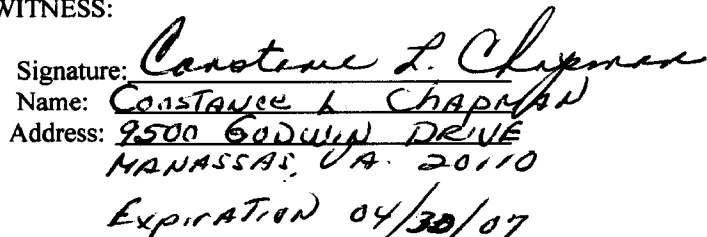 WITNESS:
Signature: Constance L. Chapman
Name: Constance L Chapman
Address: 9500 Godwin Drive
Manassas, VA. 20110
Expiration 04/30/07